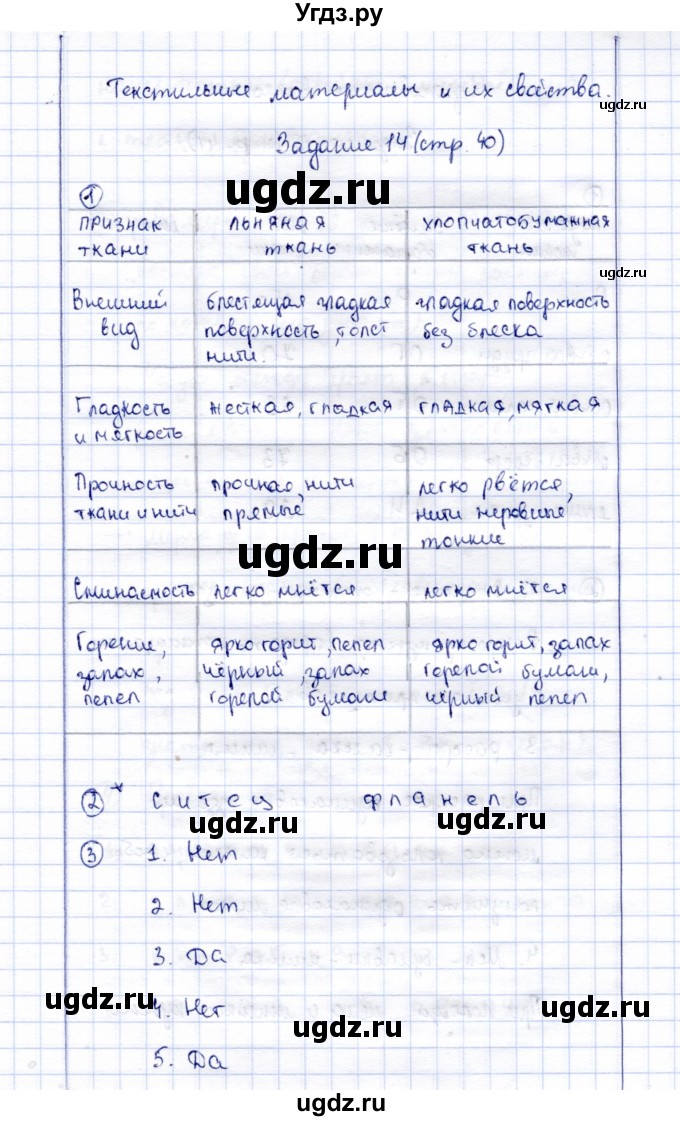 Угдз.ру
Текстильные материалы и их свойства.
ugdz.ru
Задание 14 (стр. 40)
ugdz.ru
1
ПРИЗНАК ТКАНИ | ЛЬНЯНАЯ ТКАНЬ | ХЛОПЧАТОБУМАЖНАЯ ТКАНЬ
ugdz.ru
Внешний вид | блестящая гладкая поверхность, толст нити. | гладкая поверхность без блеска
Гладкость и мягкость | жесткая, гладкая | гладкая, мягкая
Прочность ткани и нити | прочная, нити прямые | легко рвётся, нити неровные тонкие
ugdz.ru
Сминаемость | легко мнётся | легко мнётся
Горение, запах, пепел | ярко горит, пепел чёрный, запах горелой бумаги | ярко горит, запах горелой бумаги, чёрный пепел
2 * ситец фланель
ugdz.ru ugdz.ru
3 1. Нет
2. Нет
3. Да
ugdz.ru
4. Нет
ugdz.ru
5. Да
ugdz.ru